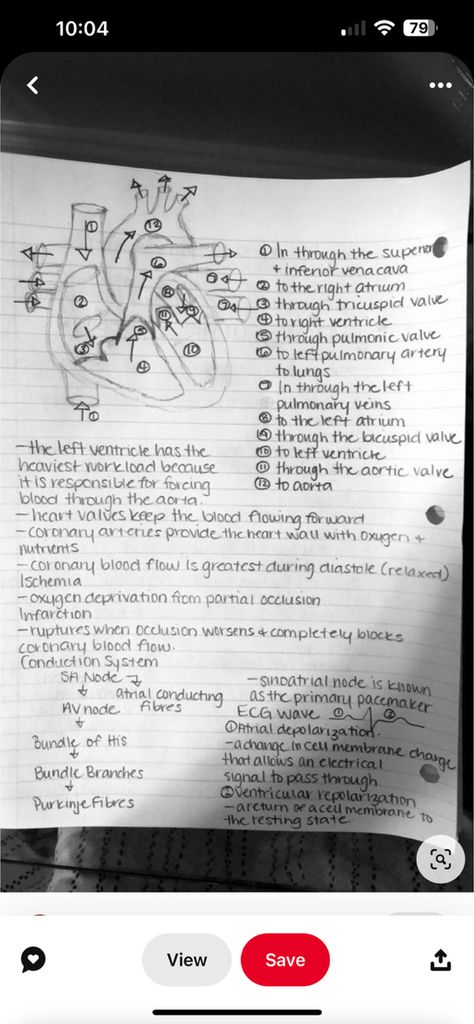 10:04
79
① In through the superior
+ inferior vena cava
② to the right atrium
③ through tricuspid valve
④ to right ventricle
⑤ through pulmonic valve
⑥ to left pulmonary artery
to lungs
⑦ In through the left
pulmonary veins
⑧ to the left atrium
⑨ through the bicuspid valve
⑩ to left ventricle
⑪ through the aortic valve
⑫ to aorta
-the left ventricle has the
heaviest workload because
it is responsible for forcing
blood through the aorta.
-heart valves keep the blood flowing forward
-coronary arteries provide the heart wall with oxygen +
nutrients
-coronary blood flow is greatest during diastole (relaxed)
Ischemia
-oxygen deprivation from partial occlusion
Infarction
-ruptures when occlusion worsens & completely blocks
coronary blood flow.
Conduction System
SA Node
atrial conducting
fibres
AV node
Bundle of His
Bundle Branches
Purkinje Fibres
-sinoatrial node is known
as the primary pacemaker
ECG wave ① ②
① Atrial depolarization.
-a change in cell membrane charge
that allows an electrical
signal to pass through.
② ventricular repolarization
-a return of a cell membrane to
the resting state
View
Save